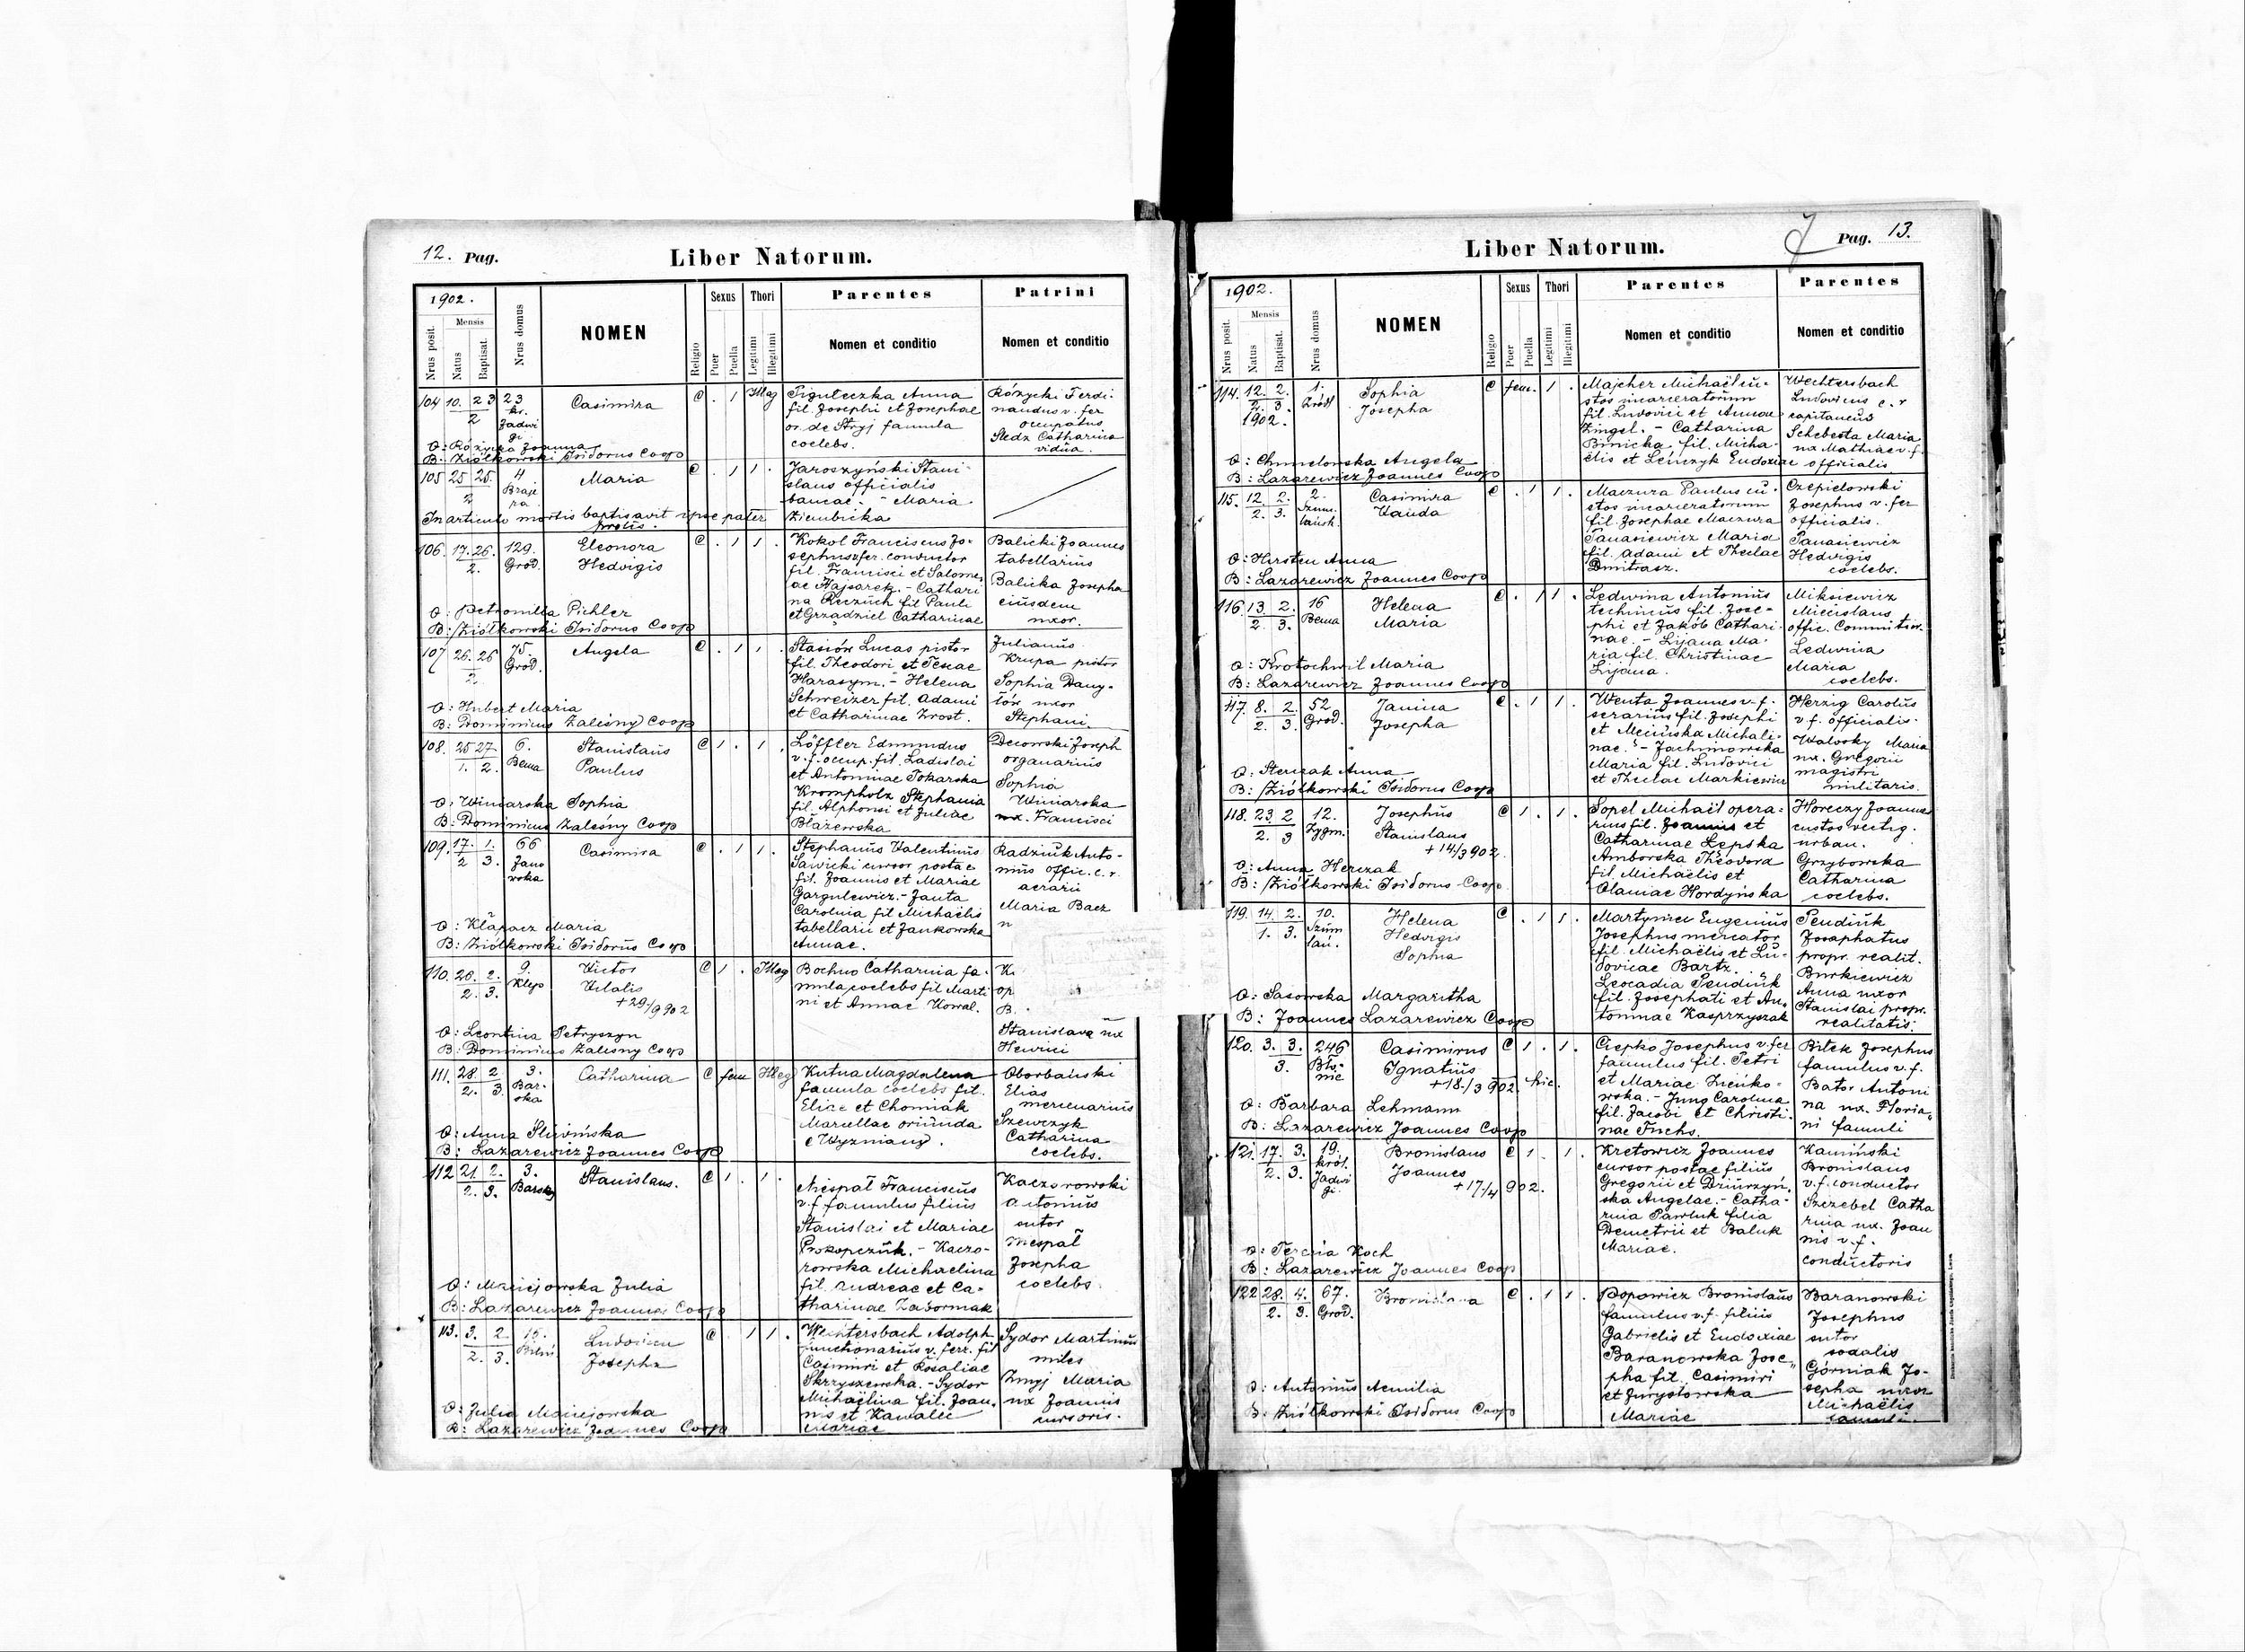 12. Pag.
Liber Natorum.
1902.
Nrus posit.
Mensis
Natus
Baptisat.
Nrus domus
NOMEN
Religio
Sexus
Puer
Puella
Thori
Legitimi
Illegitimi
Parentes
Nomen et conditio
Patrini
Nomen et conditio
104 10. 23 23 Casimira
2
kr.
Jadwi
gi
Illeg
Piguleczka Anna
fil. Josephi et Josephae
or. de Stryj famula
coelebs.
Różycki Ferdi-
nandus v. fer
occupatus
Sledz Catharina
vidua.
O: Różycka Joanna
B: Ziółkowski Isidorus Coop
105 25 25. 4 Maria
2
Jaroszyński Stani-
slaus officialis
bancae. - Maria
Ziembicka
In articulo mortis baptisavit ipse pater
prolis.
106. 17. 26. 129. Eleonora
2. Grod. Hedvigis
Kokol Franciscus Jo-
sephus v. fer. conductor
fil. Francisci et Salome-
ae Hajsarek. - Cathari
na Reczuch fil Pauli
et Grządziel Catharinae
Balicki Joannes
tabellarius
Balicka Josepha
eiusdem
uxor.
O: Petronilla Pichler
B: Ziółkowski Isidorus Coop
107 26. 26 75. Angela
2. Grod.
Stasiów Lucas pistor
fil. Theodori et Teseae
Harasym. - Helena
Schweizer fil. Adami
et Catharinae Zrost.
Julianus
Krupa pistor
Sophia Dany-
łów uxor
Stephani.
O: Hubert Maria
B: Dominicus Zaleśny Coop
108. 25 27. 6. Stanislaus
1. 2. Bema Paulus
Löffler Edmundus
v. f. occup. fil. Ladislai
et Antoninae Tokarska
Krompholz Stephania
fil. Alphonsi et Juliae
Błażewska
Decowski Joseph
organarius
Sophia
Winiarska
ux. Francisci
O: Winiarska Sophia
B: Dominicus Zaleśny Coop
109. 17. 1. 66 Casimira
2 3. Jano
wska
Stephanus Valentinus
Sawicki cursor postae
fil. Joannis et Mariae
Gargulewicz. - Janta
Carolina fil Michaëlis
tabellarii et Jankowska
Annae.
Radziuk Anto-
nius offic. c. r.
aerarii
Maria Bacz
O: Klapacz Maria
B: Ziółkowski Isidorus Coop
110. 26. 2. 9. Victor
2. 3. Klep Vitalis
+29/9 902
Illeg
Bochno Catharina fa-
mula coelebs fil Marti
ni et Annae Kowal.
Stanislava ux
Henrici
O: Leontina Petryszyn
B: Dominicus Zaleśny Coop
111. 28. 2 3. Catharina fem Illeg
2. 3. Bar-
ska
Kutna Magdalena
famula coelebs fil.
Eliae et Chomiak
Marcellae oriunda
e Wyzniany.
Oborbański
Elias
mercenarius
Szewczyk
Catharina
coelebs.
O: Anna Śliwińska
B: Lazarewicz Joannes Coop
112 21. 2. 3. Stanislaus.
2. 3. Barska
Niespał Franciscus
v. f famulus filius
Stanislai et Mariae
Prokopczuk. - Kaczo-
rowska Michaelina
fil. Andreae et Ca-
tharinae Zabormak
Kaczorowski
Antonius
sutor
Niespał
Josepha
coelebs.
O: Maciejowska Julia
B: Lazarewicz Joannes Coop
113. 3. 2 15.
2. 3. Josepha
Wechtersbach Adolph
funchonarius v. ferr. fil
Casimiri et Rosaliae
Skrzyszewska. - Sydor
Michaëlina fil. Joan-
nis et Kawalec
Mariae
Sydor Martinus
miles
Zmyj Maria
ux Joannis
cursoris.
O: Julia Maciejowska
B: Lazarewicz Joannes Coop
Liber Natorum.
Pag. 13.
1902.
Nrus posit.
Mensis
Natus
Baptisat.
Nrus domus
NOMEN
Religio
Sexus
Puer
Puella
Thori
Legitimi
Illegitimi
Parentes
Nomen et conditio
Parentes
Nomen et conditio
114. 12. 2. 1. Sophia fem.
2. 3. Źródł Josepha
1902.
Majcher Michaël cu-
stos incarceratorum
fil. Ludovici et Annae
Zingel. - Catharina
Binicka fil. Micha-
elis et Leńczyk Eudoxiae
Wechtersbach
Ludovicus c. r
capitaneus
Schebesta Maria
ux Mathiae v. f.
officialis
O: Chmielowska Angela
B: Lazarewicz Joannes Coop
115. 12 2. 2. Casimira
2. 3. Vanda
Maczura Paulus cu-
stos incarceratorum
fil. Josephae Maczura
Panasiewicz Maria
fil. Adami et Theclae
Dmitrasz.
Czepielowski
Josephus v. fer
officialis.
Panasiewicz
Hedvigis
coelebs.
O: Hirsten Anna
B: Lazarewicz Joannes Coop
116. 13. 2. 16 Helena
2. 3. Bema Maria
Ledwina Antonius
technicus fil. Jose-
phi et Jakób Cathari-
nae. - Lijana Ma-
ria fil. Christinae
Lijana.
Miksiewicz
Miecislaus
offic. Committ.
Ledwina
Maria
coelebs.
O: Krotochwil Maria
B: Lazarewicz Joannes Coop
117. 8. 2. 52 Janina
2. 3. Grod. Josepha
Wenta Joannes v. f.
serarius fil. Josephi
et Mecińska Michali-
nae. - Jachimowska
Maria fil. Ludovici
et Theclae Markiewicz
Herzig Carolus
v. f. officialis.
Walosky Maria
ux. Gregorii
magistri
militaris.
O: Sterczak Anna
B: Ziółkowski Isidorus Coop
118. 23 2 12. Josephus
2. 3 Zygm. Stanislaus
+14/3 902.
Sopel Michaël opera-
rius fil. Joannis et
Catharinae Łępska
Amborska Theodora
fil. Michaëlis et
Olaniae Hordyńska
Horeczy Joannes
custos vectig.
urban.
Grzybowska
Catharina
coelebs.
O: Anna Herczak
B: Ziółkowski Isidorus Coop.
119. 14. 2. 10. Helena
1. 3. Szum Hedvigis
lań. Sophia
Martyniec Eugenius
Josephus mercator
fil. Michaëlis et Lu-
dovicae Bartz.
Leocadia Peudiuk
fil. Josephati et An-
toninae Kasprzyszak
Peudiuk
Josaphatus
propr. realit.
Burkiewicz
Anna uxor
Stanislai propr.
realitatis.
O: Sasowska Margaritha
B: Joannes Lazarewicz Coop
120. 3. 3. 246 Casimirus
3. Bło-
nie Ignatius
+18/3 902. hic.
Ciepko Josephus v. fer
famulus fil. Petri
et Mariae Zienko-
wska. - Jung Carolina
fil. Jacobi et Christi-
nae Fuchs.
Bitek Josephus
famulus v. f.
Bator Antoni
na ux. Floria-
ni famuli
O: Barbara Lehmann
B: Lazarewicz Joannes Coop
121. 17. 3. 19. Bronislaus
2. 3. król. Joannes
Jadwi
gi. +17/4 902.
Kretowicz Joannes
cursor postae filius
Gregorii et Dziurzyń-
ska Angelae. - Catha-
rina Pawluk filia
Demetrii et Baluk
Mariae.
Kamiński
Bronislaus
v. f. conductor
Szczebel Catha
rina ux. Joan
nis v. f.
conductoris
O: Teresia Koch
B: Lazarewicz Joannes Coop
122 28. 4. 67.
2. 3. Grod.
Popowicz Bronislaus
famulus v. f. filius
Gabrielis et Eudoxiae
Baranowska Jose-
pha fil. Casimiri
et Jurystowska
Mariae
Baranowski
Josephus
sutor
sodalis
Górniak Jo-
sepha uxor
Michaëlis
famuli.
O: Antonius Aemilia
B: Ziółkowski Isidorus Coop